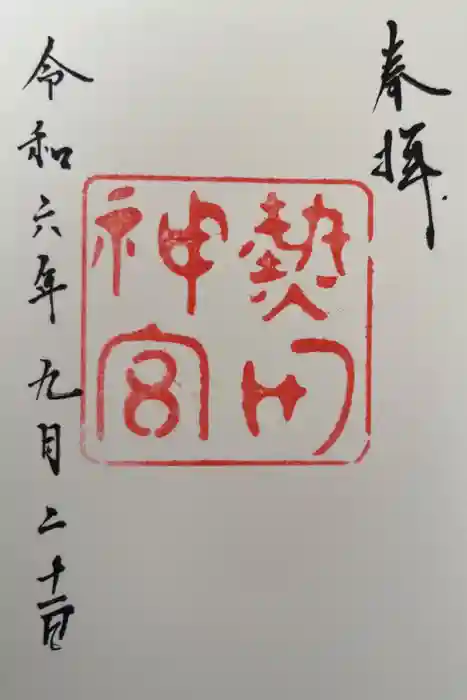 奉拝
熱田
神宮
令和六年九月二十一日